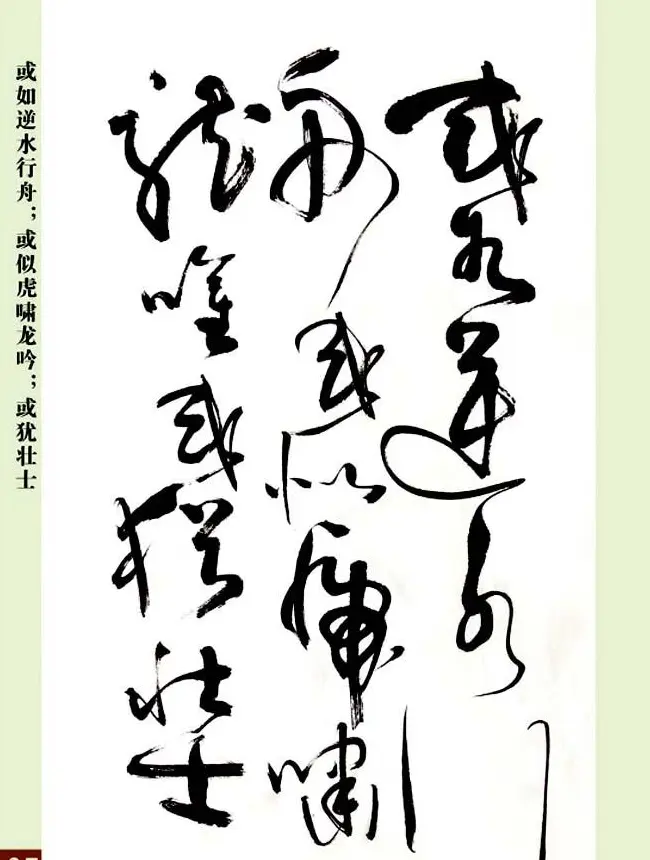 或如逆水行
舟或似虎啸
龙吟或犹壮士
或如逆水行舟；或似虎啸龙吟；或犹壮士